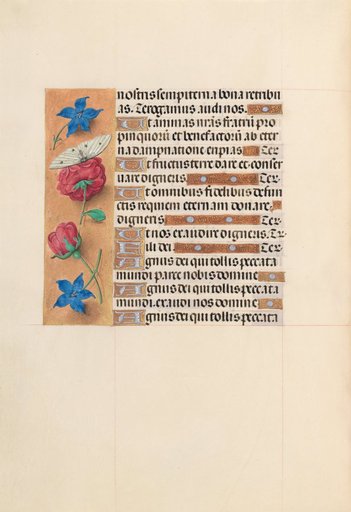 nostris sempiterna bona retribu
as. Te rogamus audi nos.
Ut animas nr̃as fratrũ pro
pinquorũ et benefactorũ ab eter
na dampnatione eripias. Te r
Ut fructus terre dare et conser
uare digneris. Te r
Ut omnibus fidelibus defun
ctis requiem eternam donare
digneris Te r
Ut nos exaudire digneris. Te r
Fili dei Te r
Agnus dei qui tollis peccata
mundi. parce nobis domine
Agnus dei qui tollis peccata
mundi. exaudi nos domine
Agnus dei qui tollis peccata